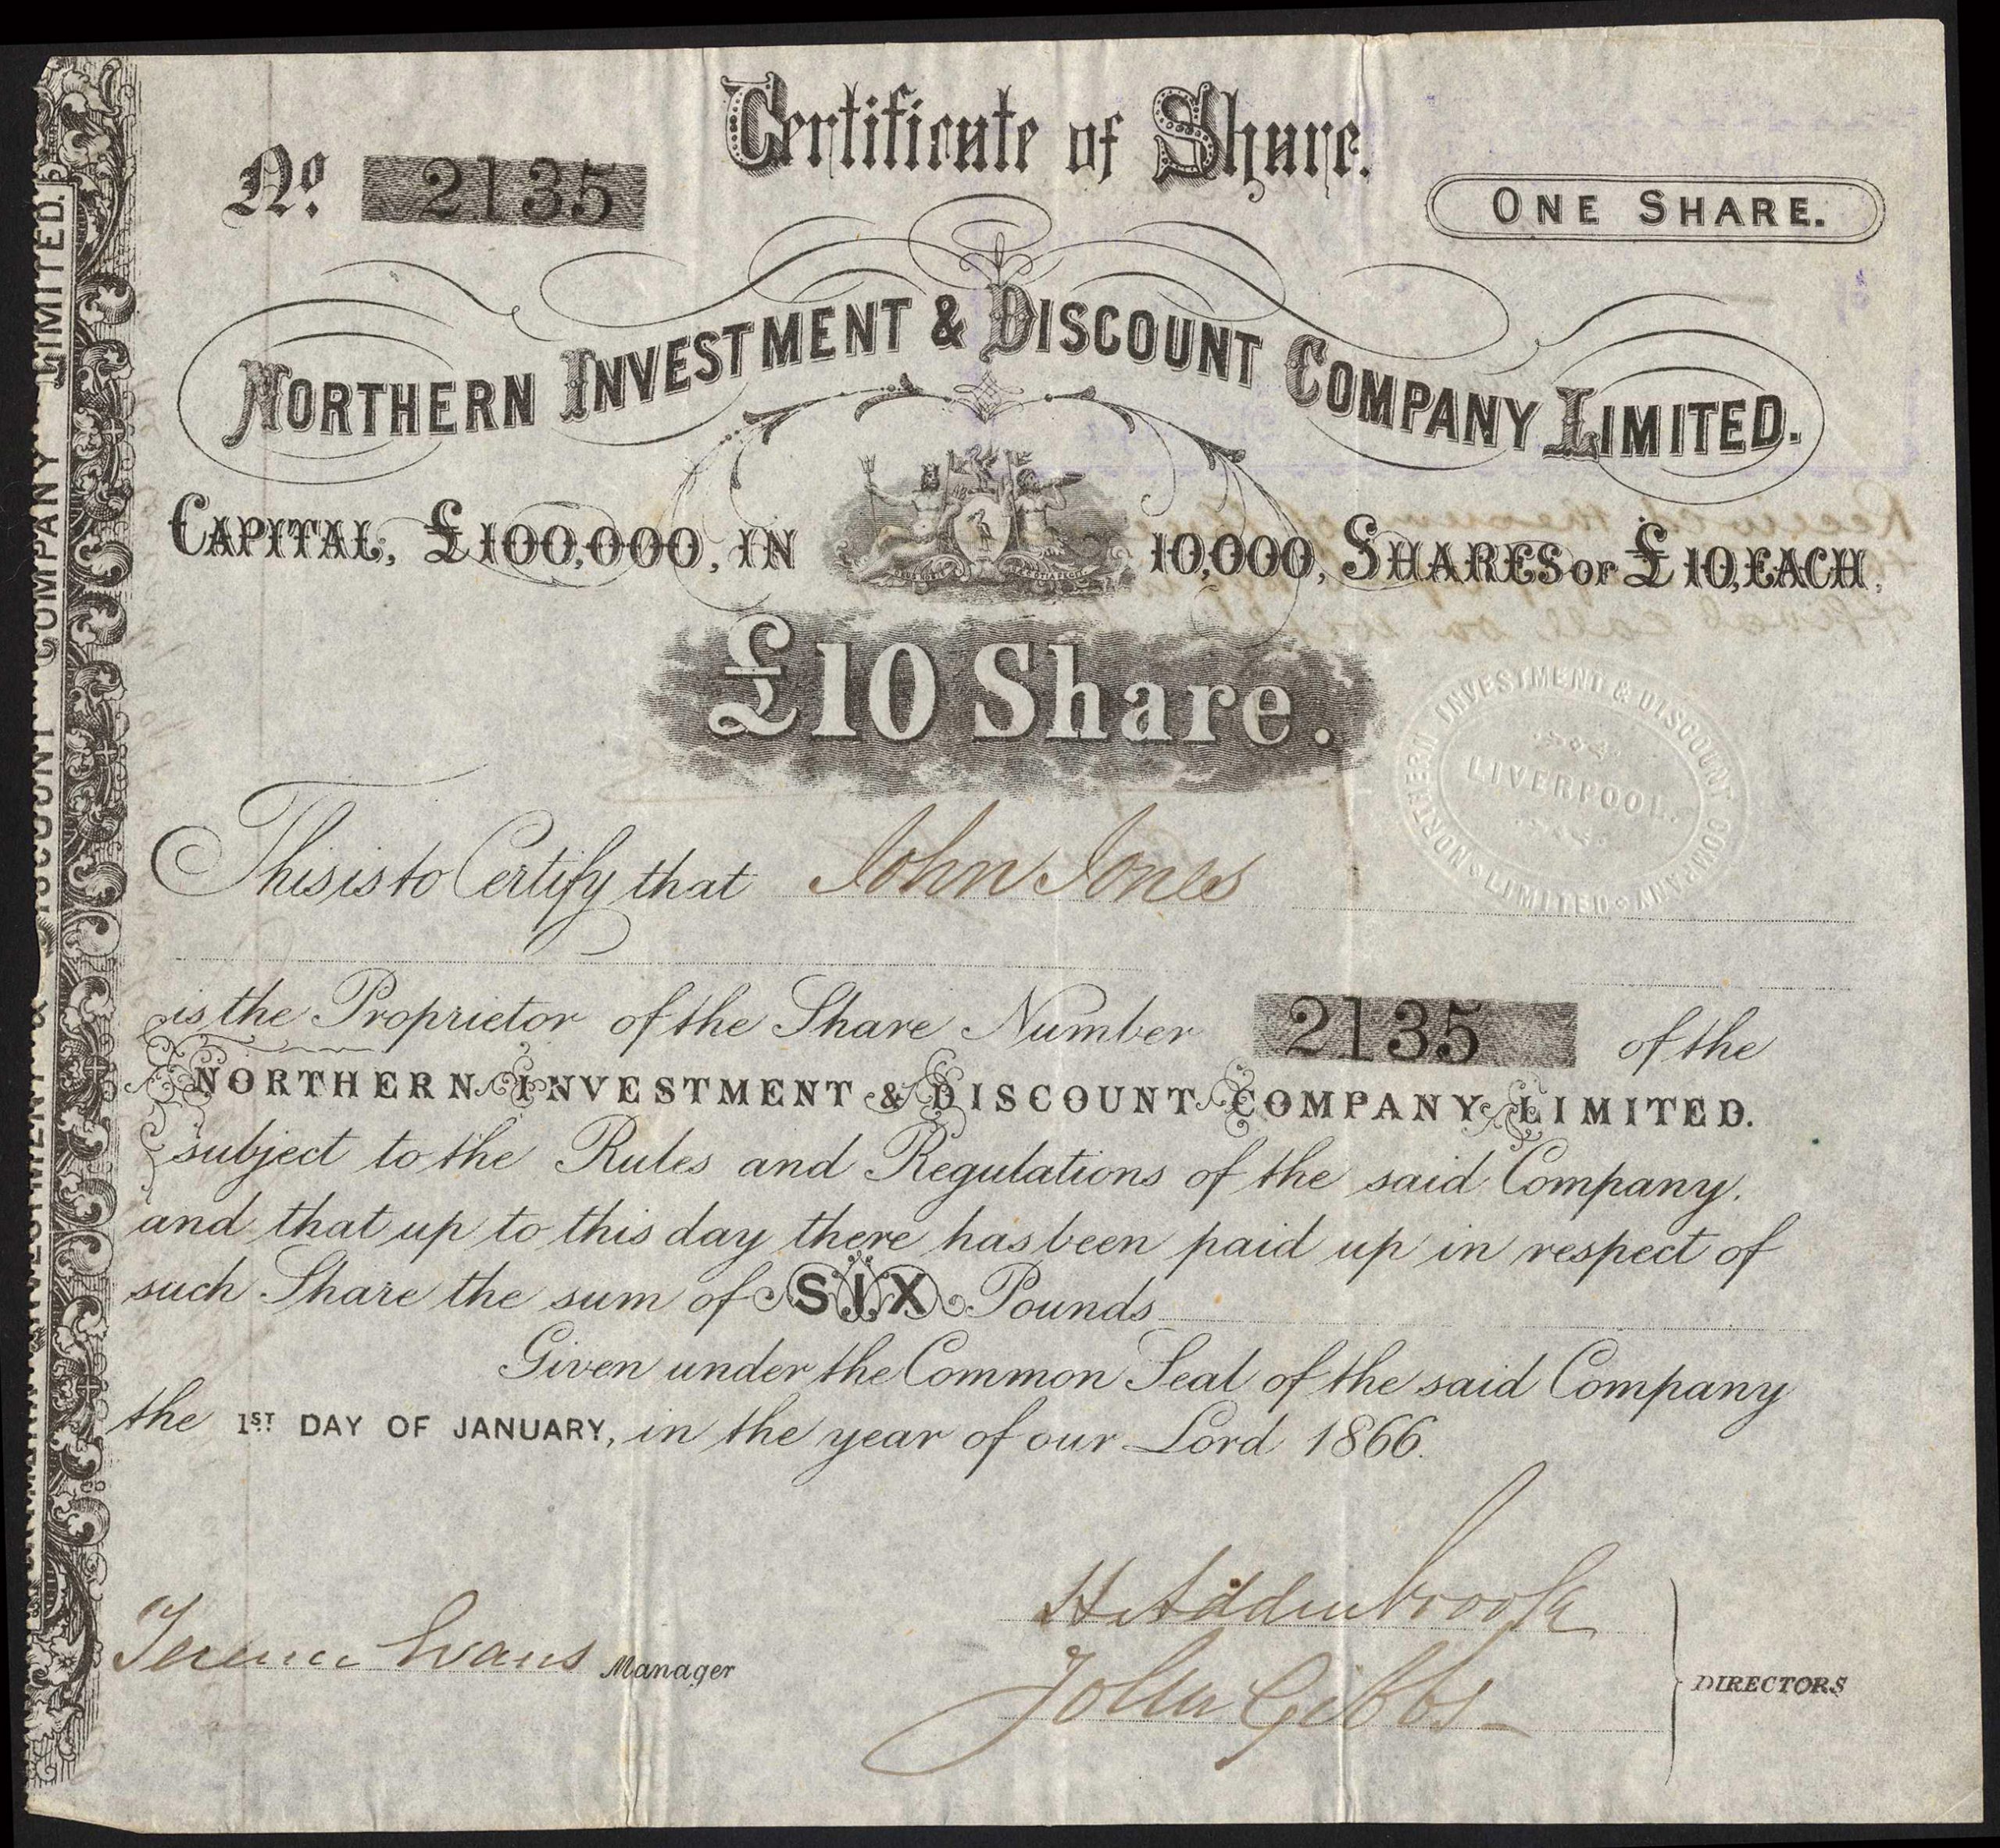 Certificate of Share.
No. 2135
ONE SHARE.
NORTHERN INVESTMENT & DISCOUNT COMPANY LIMITED.
CAPITAL, £100,000, IN 10,000, SHARES OF £10, EACH,
£10 Share.
NORTHERN INVESTMENT & DISCOUNT COMPANY LIMITED
LIVERPOOL.
This is to Certify that John Jones
is the Proprietor of the Share Number 2135 of the
NORTHERN INVESTMENT & DISCOUNT COMPANY LIMITED.
subject to the Rules and Regulations of the said Company,
and that up to this day there has been paid up in respect of
such Share the sum of SIX Pounds
Given under the Common Seal of the said Company
the 1ST DAY OF JANUARY, in the year of our Lord 1866.
H Addenbrook
Terence Evans Manager
John Gibbs
DIRECTORS
INVESTMENT & DISCOUNT COMPANY LIMITED.